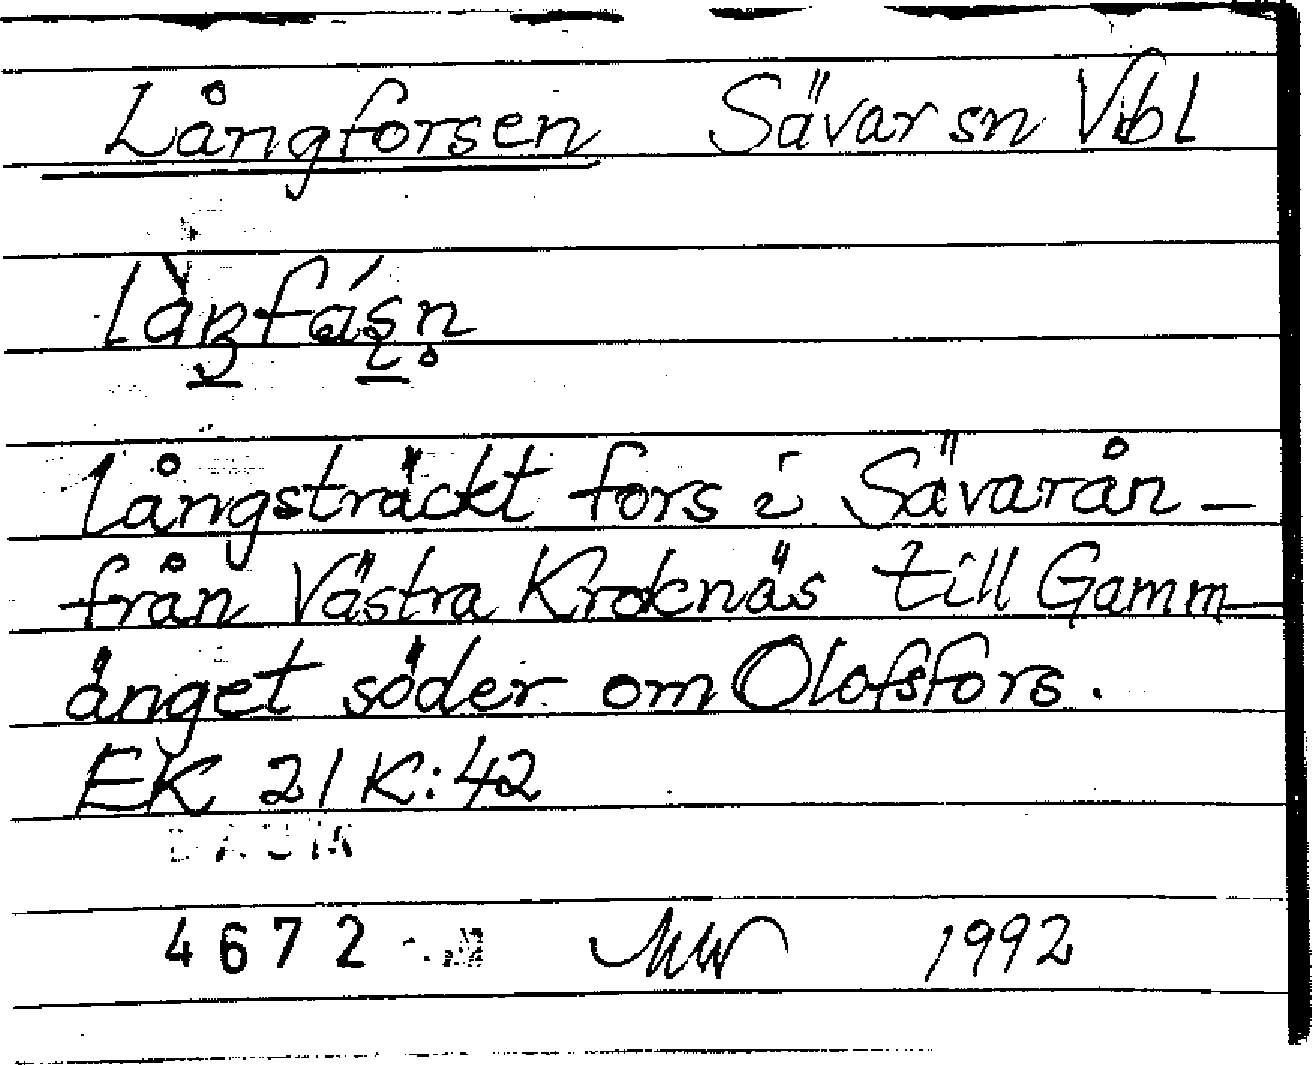 Långforsen Sävar sn Vbl
Långsträckt fors i Sävarån –
från Västra Kroknäs till Gamm-
änget söder om Olofsfors.
EK 21 K:42
DAUM
4672 MW 1992